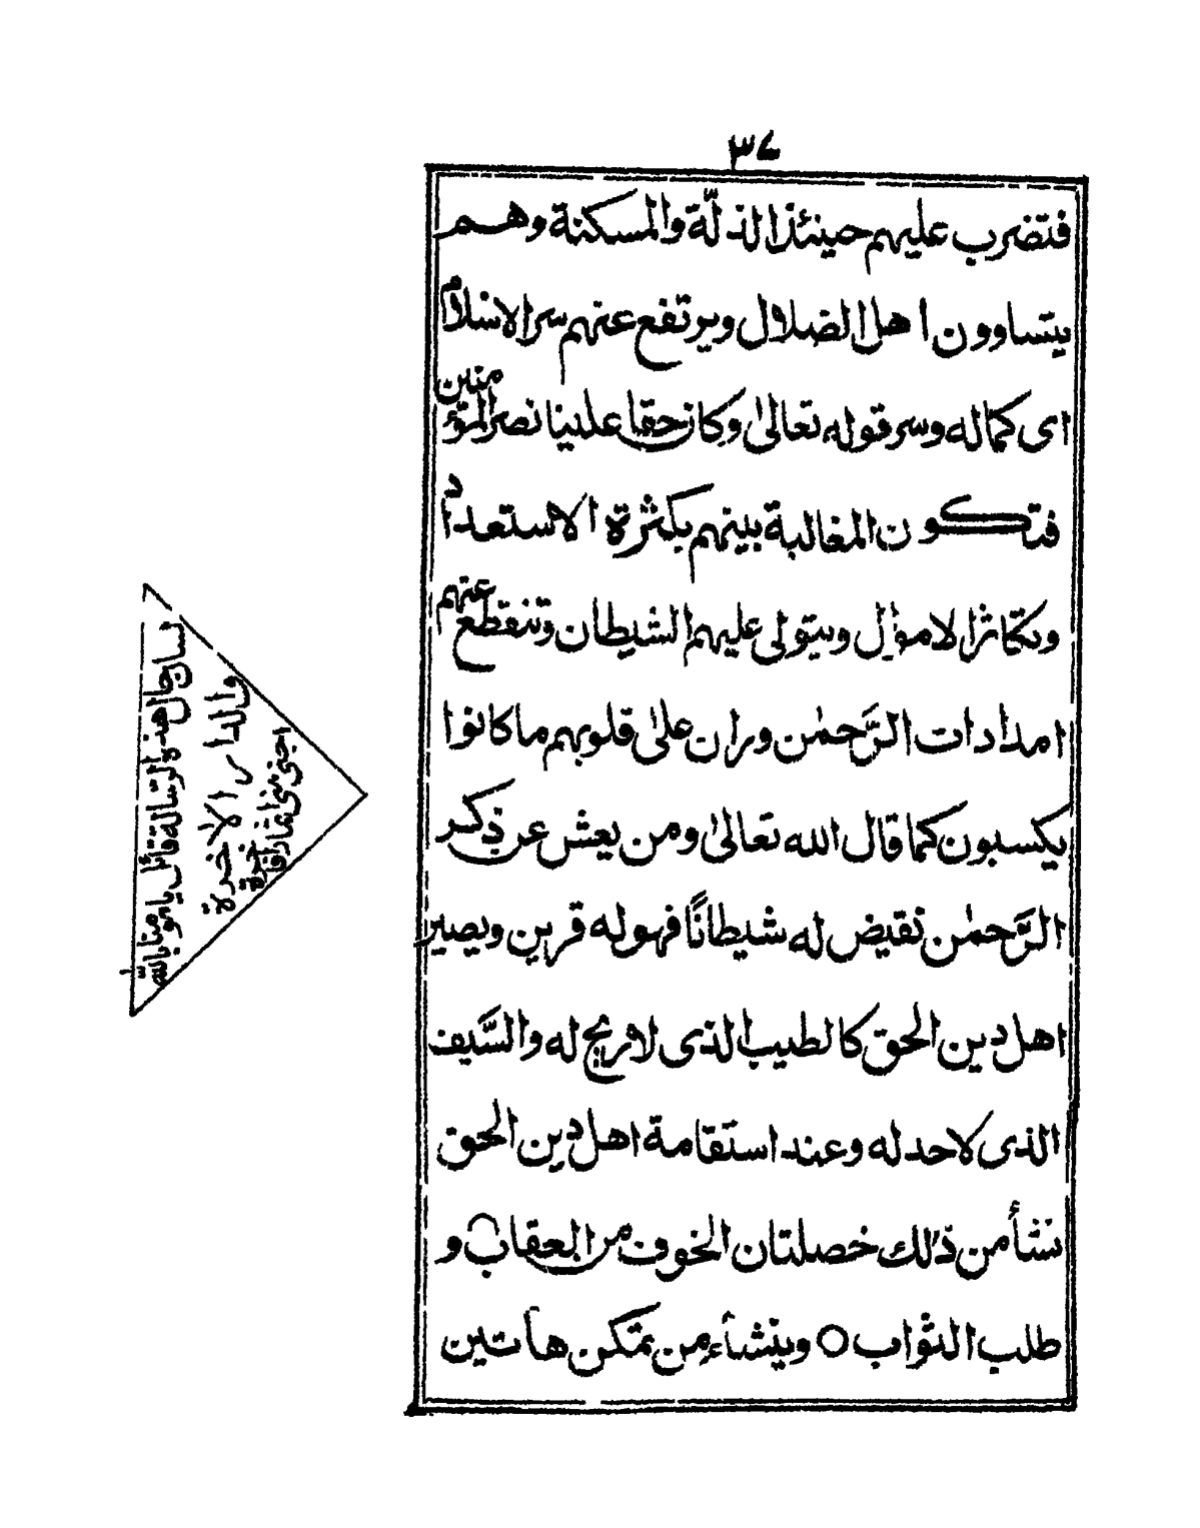 ٣٧
فتضرب عليهم حينئذ الذلّة والمسكنة وهم
يتساوون اهل الضلال ويرتفع عنهم سر الاسلام
اى كماله وسر قوله تعالىٰ وكان حقا علينا نصر المؤمنين
فتكون المغالبة بينهم بكثرة الاستعداد
وبتكاثر الاموال ويتولى عليهم الشيطان وتنقطع عنهم
امدادات الرَّحمٰن وران علىٰ قلوبهم ما كانوا
يكسبون كما قال الله تعالىٰ ومن يعش عن ذكر
الرَّحمٰن نقيض له شيطانًا فهو له قرين ويصير
اهل دين الحق كالطيب الذى لا ريح له والسَّيف
الذى لا حد له وعند استقامة اهل دين الحق
ننشأ من ذٰلك خصلتان الخوف من العقاب و
طلب الثواب ○ وينشاء من تمكن هاتين
لسان حال هذه الرسالة قائل يا مومنا بالله
والدار الاخرة
اجنى منى ثمار